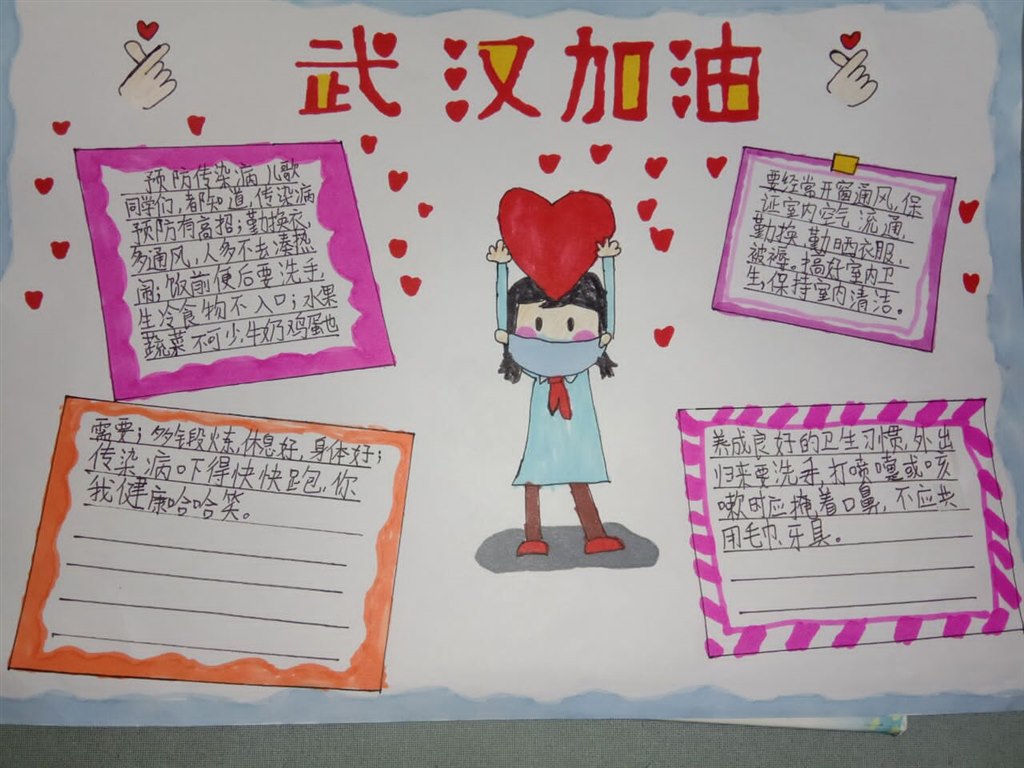 武汉加油
预防传染病儿歌
同学们,都知道,传染病
预防有高招;勤换衣
多通风,人多不去凑热
闹;饭前便后要洗手,
生冷食物不入口;水果
蔬菜不可少,牛奶鸡蛋也
需要;多锻炼,休息好,身体好;
传染病吓得快快跑,你
我健康哈哈笑。
要经常开窗通风,保
证室内空气流通,
勤换勤晒衣服、
被褥。搞好室内卫
生,保持室内清洁。
养成良好的卫生习惯,外出
归来要洗手,打喷嚏或咳
嗽时应掩着口鼻,不应共
用毛巾、牙具。